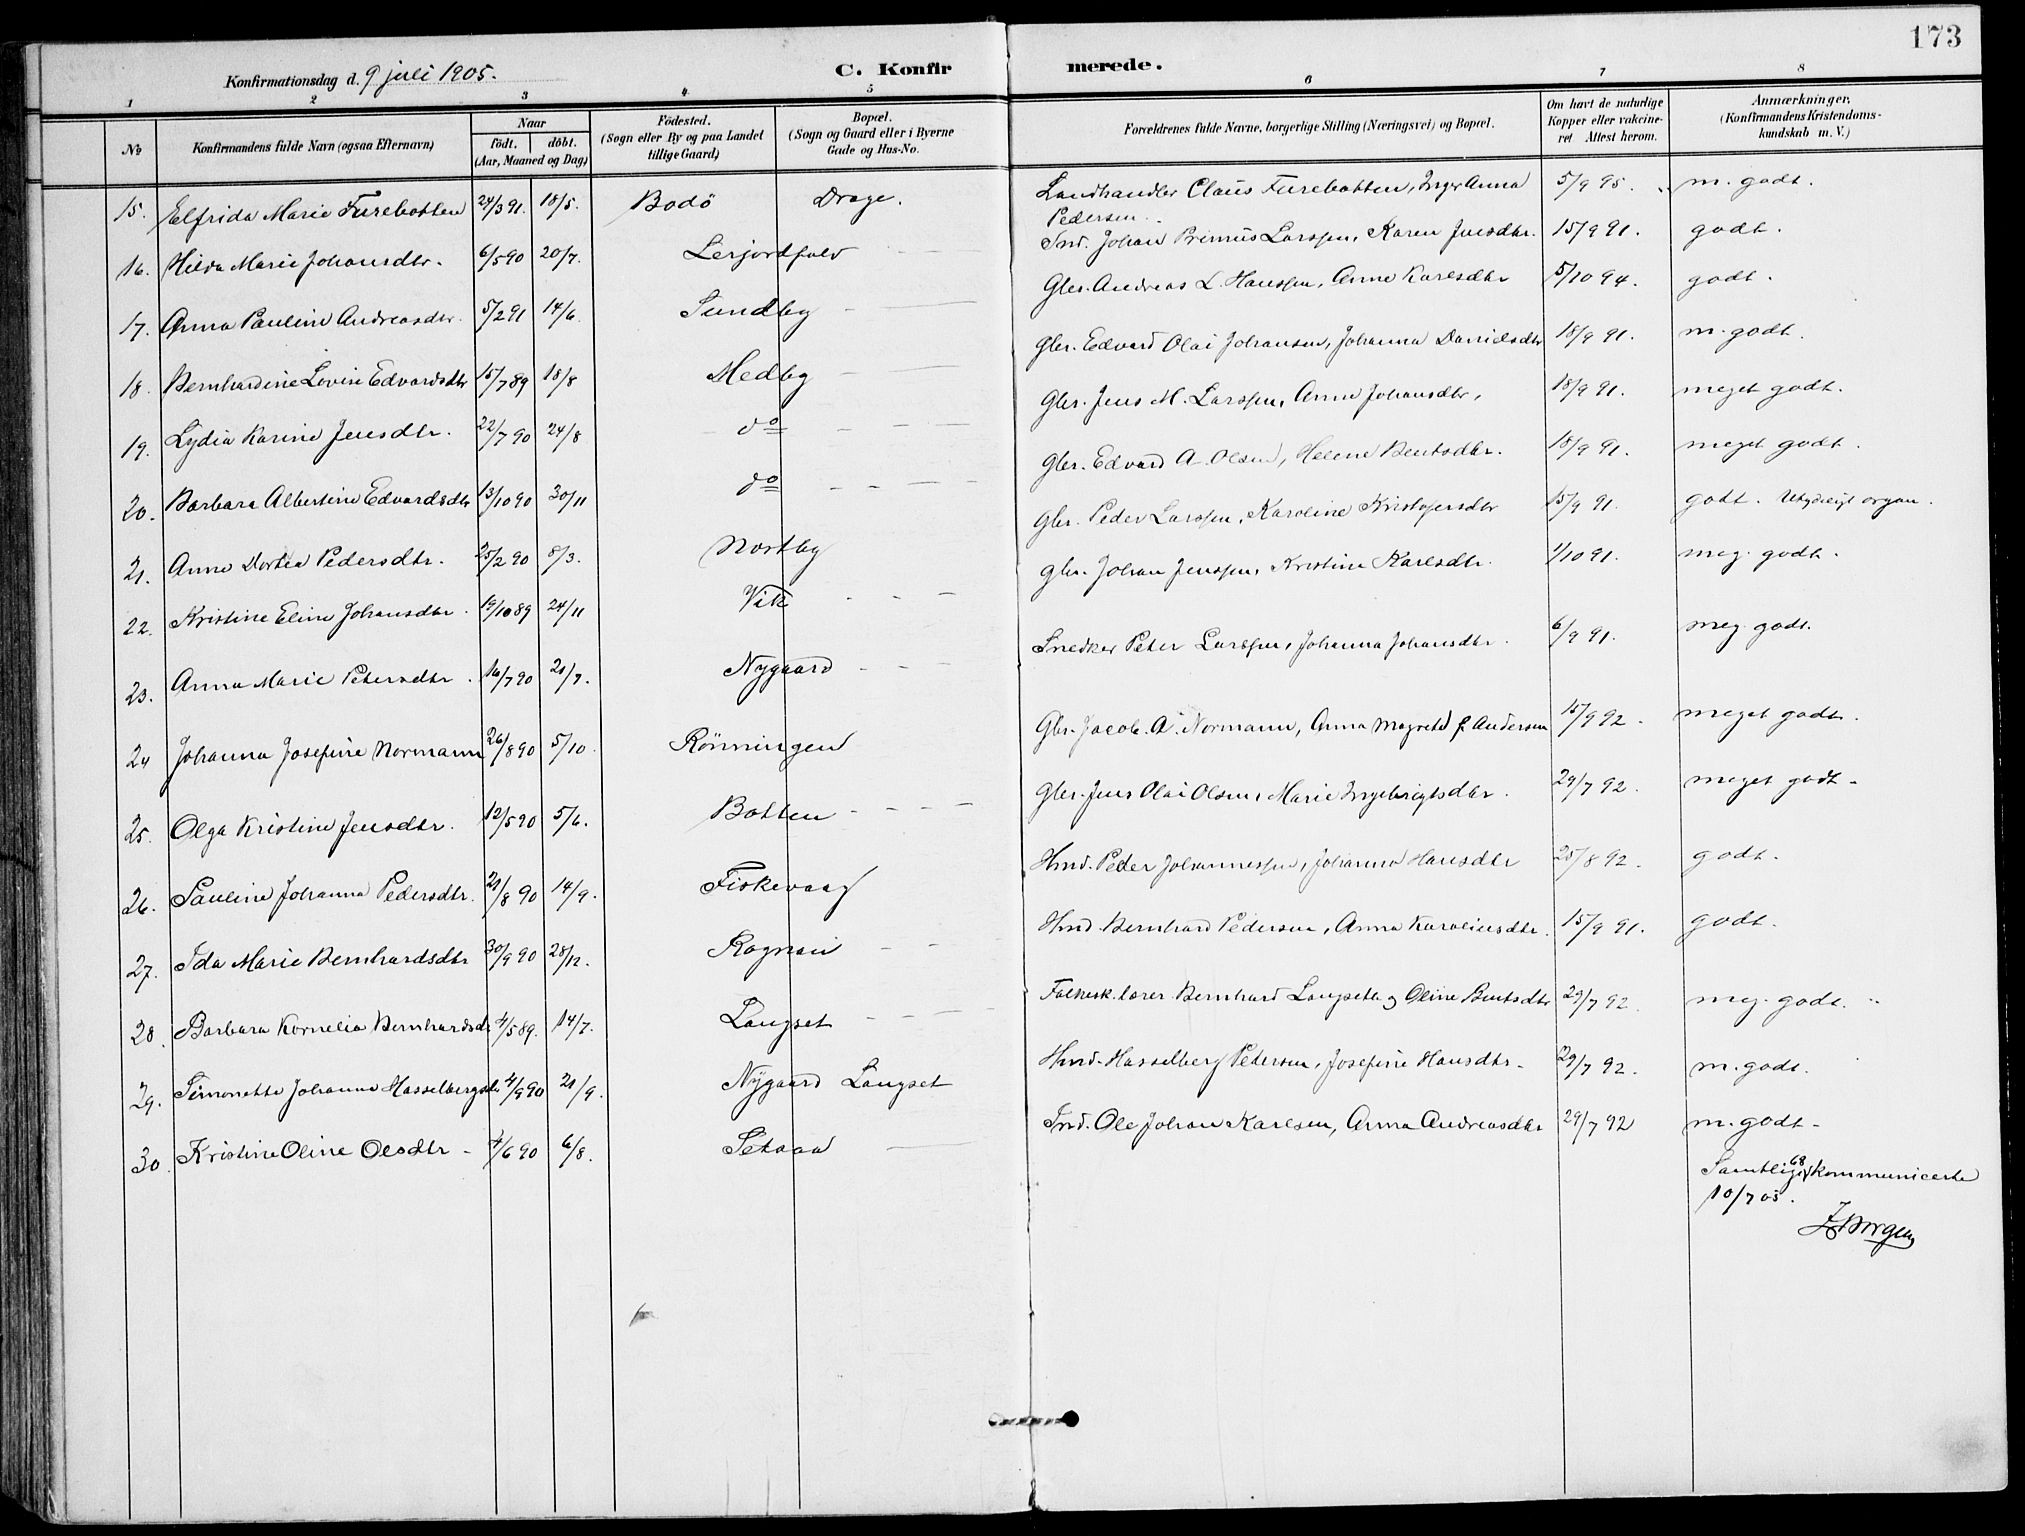 173
Konfirmationsdag d. 9 juli 1905.
C. Konfirmerede.
1 2 3 4 5 6 7 8
No
Konfirmandens fulde Navn (ogsaa Efternavn)
Naar
födt. döbt.
(Aar, Maaned og Dag)
Födested.
(Sogn eller By og paa Landet
tillige Gaard)
Bopæl.
(Sogn og Gaard eller i Byerne
Gade og Hus-No.
Forældrenes fulde Navne, borgerlige Stilling (Næringsvei) og Bopæl.
Om havt de naturlige
Kopper eller vakcine-
ret Attest herom.
Anmærkninger.
(Konfirmandens Kristendoms-
kundskab m. V.)
15. Elfrida Marie Furebotten 24/3 91. 18/5. Bodö Drage. Landhandler Claus Furebotten, Inger Anna Pedersen 5/9 95. m. godt.
16. Hilda Marie Johansdtr. 6/5 90 20/7. Lerjordfald Ind. Johan Primus Larssen, Karen Jensdtr. 15/9 91. godt.
17. Anna Pauline Andreasdtr. 5/2 91 14/6. Sundby Gbr. Andreas L. Hanssen, Anne Karlsdtr 5/10 94. godt.
18. Bernhardine Lovise Edvardsdtr 15/7 89 18/8 Medby Gbr. Edvard Olai Johansen, Johanna Danielsdtr 18/9 91. m. godt.
19. Lydia Karine Jensdtr. 22/7 90 24/8 do Gbr. Jens M. Larssen, Anne Johansdtr, 18/9 91. meget godt.
20. Barbara Albertine Edvardsdtr 13/10 90 30/11 do Gbr. Edvard A. Olsen, Helene Bentsdtr. 18/9 91. meget godt.
21. Anne Dortea Pedersdtr. 25/2 90 8/3. Nestby Gbr. Peder Larssen, Karoline Kristofersdtr 15/9 91. godt. Utydeligt organ.
22. Kristine Eline Johansdtr. 19/10 89 24/11 Vik Gbr. Johan Jenssen, Kristine Karlsdtr. 1/10 91. meg. godt.
23. Anna Marie Petersdtr. 16/7 90 21/7. Nygaard Snedker Peter Larssen, Johanna Johansdtr. 6/9 91. meg. godt.
24 Johanna Josefine Normann 26/8 90 5/10. Rönningen Gbr. Jacob. A. Normann, Anna Magrete f. Andersen 15/9 92. meget godt.
25. Olga Kristine Jensdtr. 12/5 90 5/6. Botten Gbr. Jens Olai Olsen, Marie Ingebrigtsdtr. 29/7 92. meget godt.
26. Pauline Johanna Pedersdtr. 21/8 90 14/9. Fiskevaag Hmd. Peder Johannessen, Johanna Hansdtr 25/8 92. godt.
27. Ida Marie Bernhardsdtr 30/9 90 28/12. Rognan Hmd. Bernhard Pedersen, Anna Karoliusdtr. 15/9 91. godt.
28. Barbara Kornelia Bernhardsdtr 4/5 89. 14/7. Langset Folkesk. lærer Bernhard Langset og Oline Bentsdtr 29/7 92. meg. godt.
29. Simonette Johanne Hasselbergsdtr 4/9 90 21/9. Nygaard Langset Hmd. Hasselberg Pedersen, Josefine Hansdtr. 29/7 92. m. godt.
30. Kristine Oline Olsdtr. 4/6 90 6/8. Setsaa Ind. Ole Johan Karlsen, Anna Andreasdtr 29/7 92 m. godt.
Samtlige 68 kommunicerte
10/7 05.